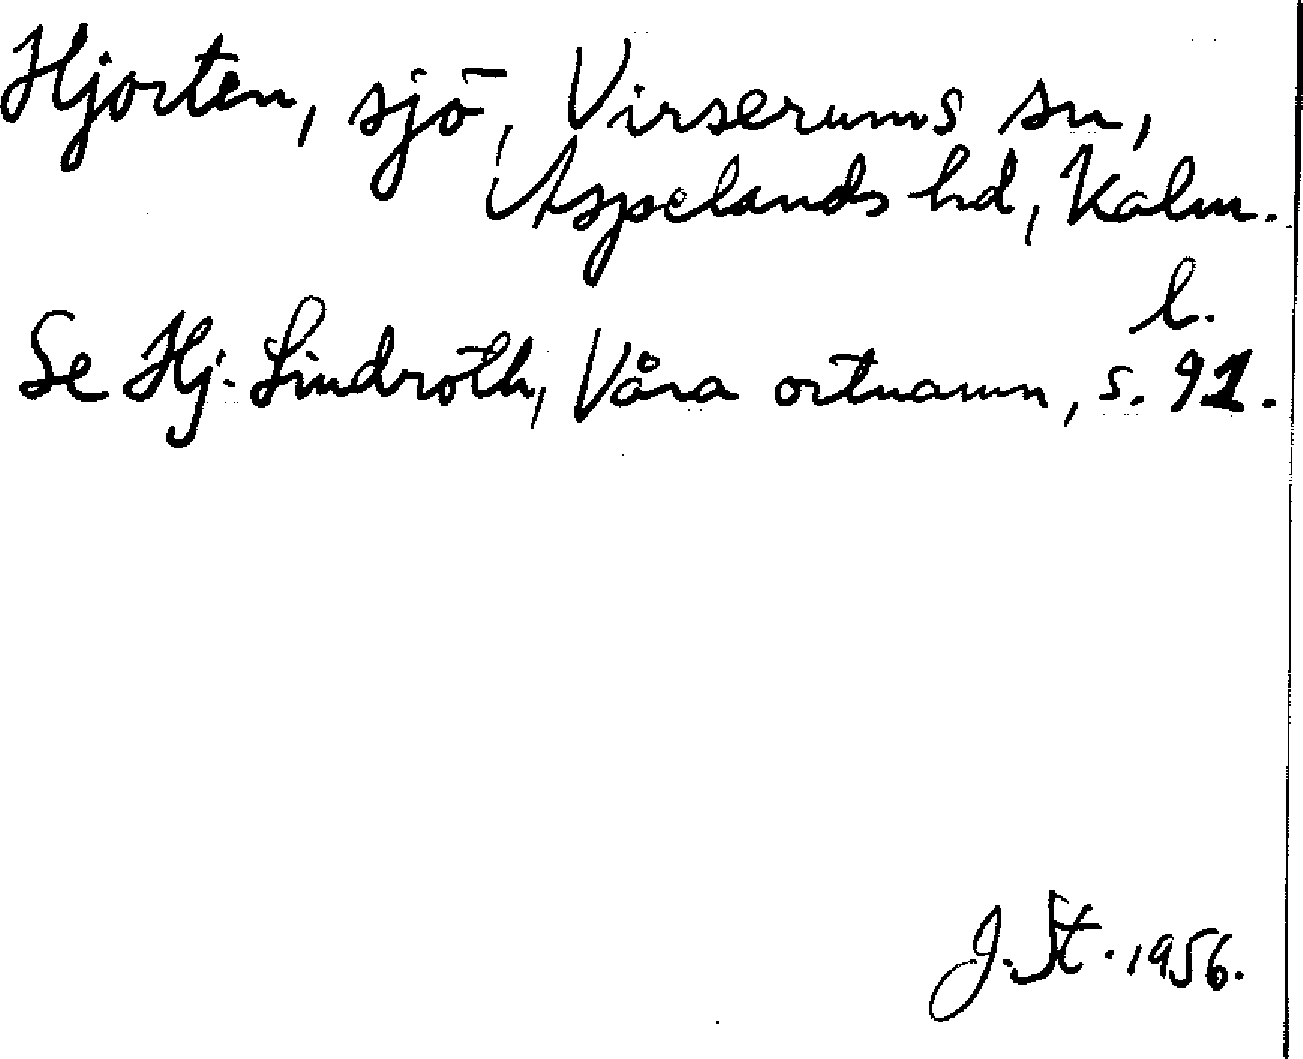 Hjorten, sjö, Virserums sn,
Aspelands hd, Kalm.
l.
Se Hj. Lindroth, Våra ortnamn, s. 91.
J. St. 1956.